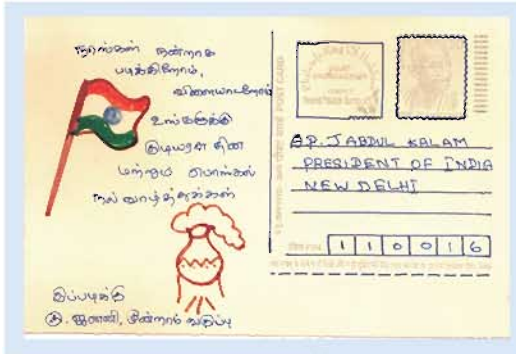 நாங்கள் நன்றாக
படிக்கிறோம்,
விளையாடறோம்
உங்களுக்கு
குடியரசு தின
மற்றும் பொங்கல்
நல் வாழ்த்துக்கள்
இப்படிக்கு
கு. ஜனனி, மூன்றாம் வகுப்பு
POST CARD
A.P.J ABDUL KALAM
PRESIDENT OF INDIA
NEW DELHI
PIN
1 1 0 0 1 6